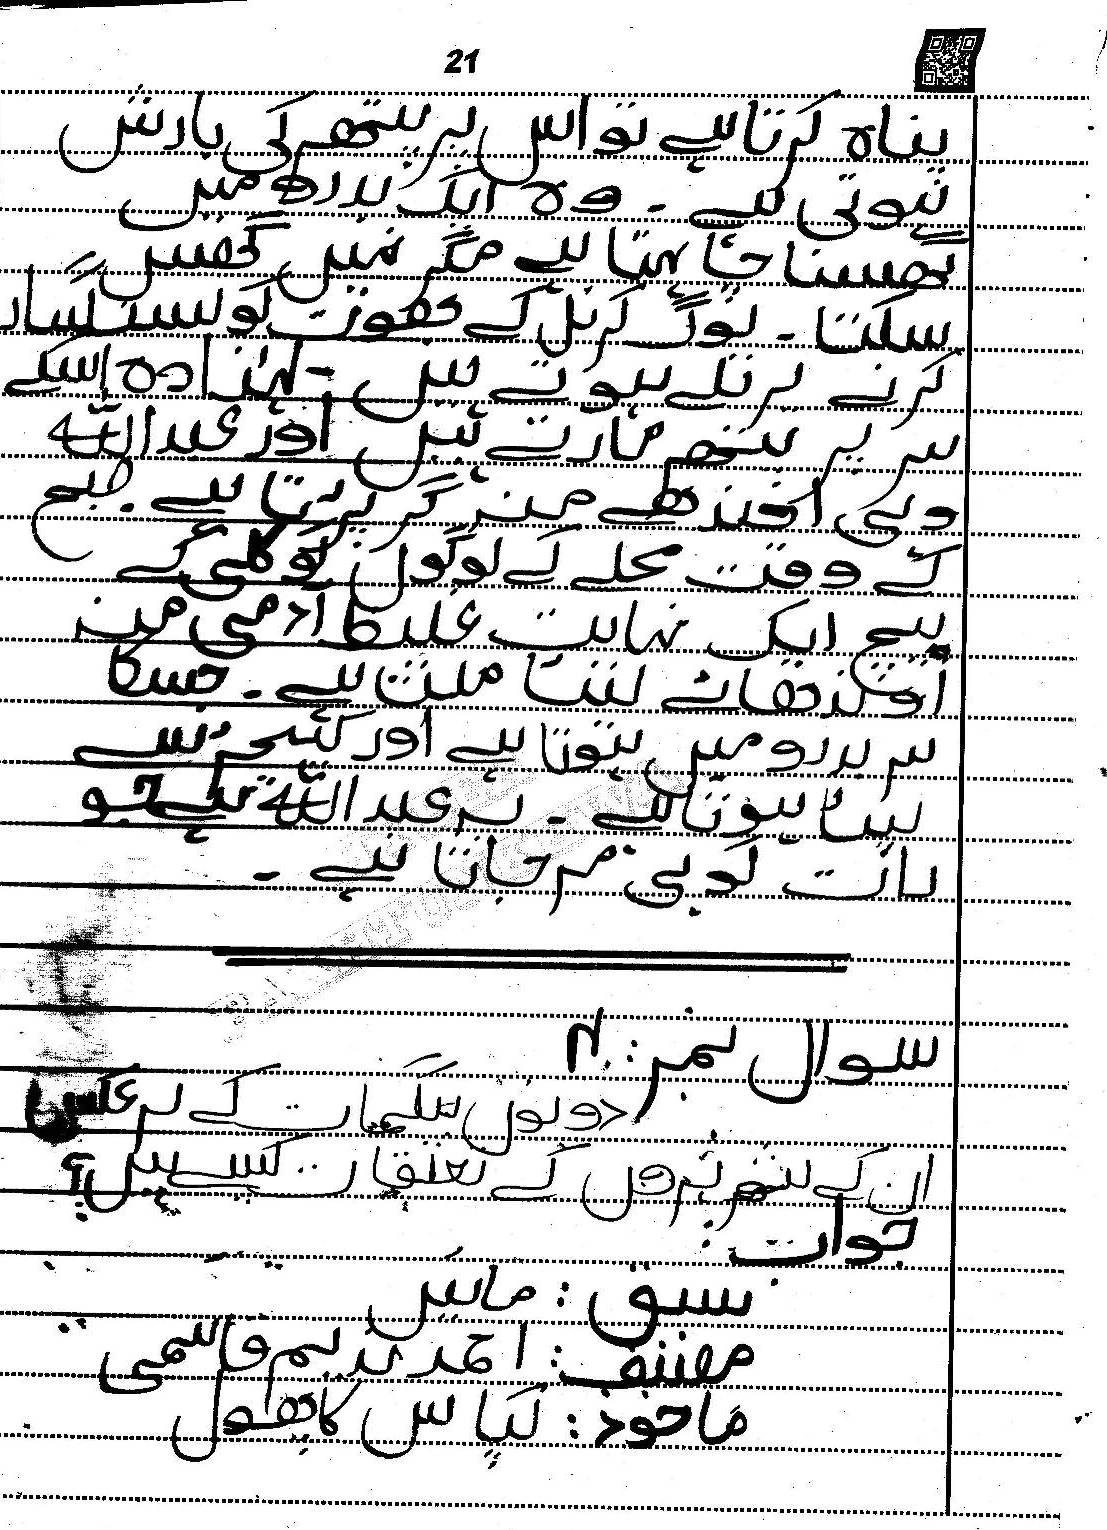 21
پناہ کرتا ہے تو اس پر پتھر کی بارش
ہوتی ہے ۔ وہ ایک بدرو میں
گھسنا چاہتا ہے مگر نہیں گھس
سکتا ۔ لوگ کرنل کے بھوت کو سنگسار
کرنے پر تلے ہوتے ہیں ۔ لہٰذا وہ اسکے
سر پر پتھر مارتے ہیں اور عبداللہ
وہی اوندھے منہ گر پڑتا ہے ۔ صبح
کے وقت محلے کے لوگوں کو گلی کے
بیچ ایک نہایت غلیظ آدمی منہ
اوندھائے لیٹا ملتا ہے ۔ جسکا
سر بدرو میں ہوتا ہے اور کیچڑ سے
لپٹا ہوتا ہے ۔ یہ عبداللہ ہے جو
رات کو ہی مر جاتا ہے ۔
سوال نمبر: 4
دونوں بیگمات کے برعکس
ان کے شوہروں کے تعلقات کیسے ہیں؟
جواب:
سبق : ماسی
مصنف : احمد ندیم قاسمی
ماخوذ : کپاس کا پھول